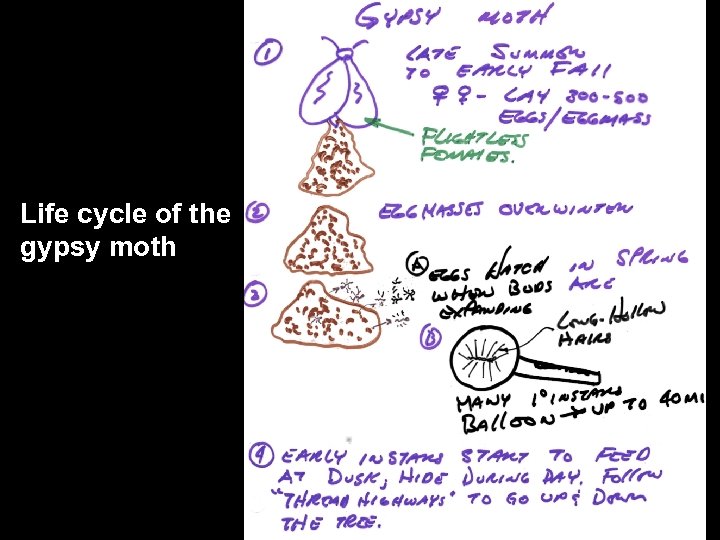 Life cycle of the
gypsy moth
GYPSY MOTH
① LATE SUMMER
TO EARLY FALL
♀♀- LAY 300-500
EGGS/EGGMASS
FLIGHTLESS
FEMALES.
② EGG MASSES OVERWINTER
③
Ⓐ EGGS HATCH IN SPRING
WHEN BUDS ARE
EXPANDING
Ⓑ
LONG-HOLLOW
HAIRS
MANY 1° INSTARS
BALLOON → UP TO 40 MI
④ EARLY INSTARS START TO FEED
AT DUSK, HIDE DURING DAY. FOLLOW
"THREAD HIGHWAYS" TO GO UP & DOWN
THE TREE.